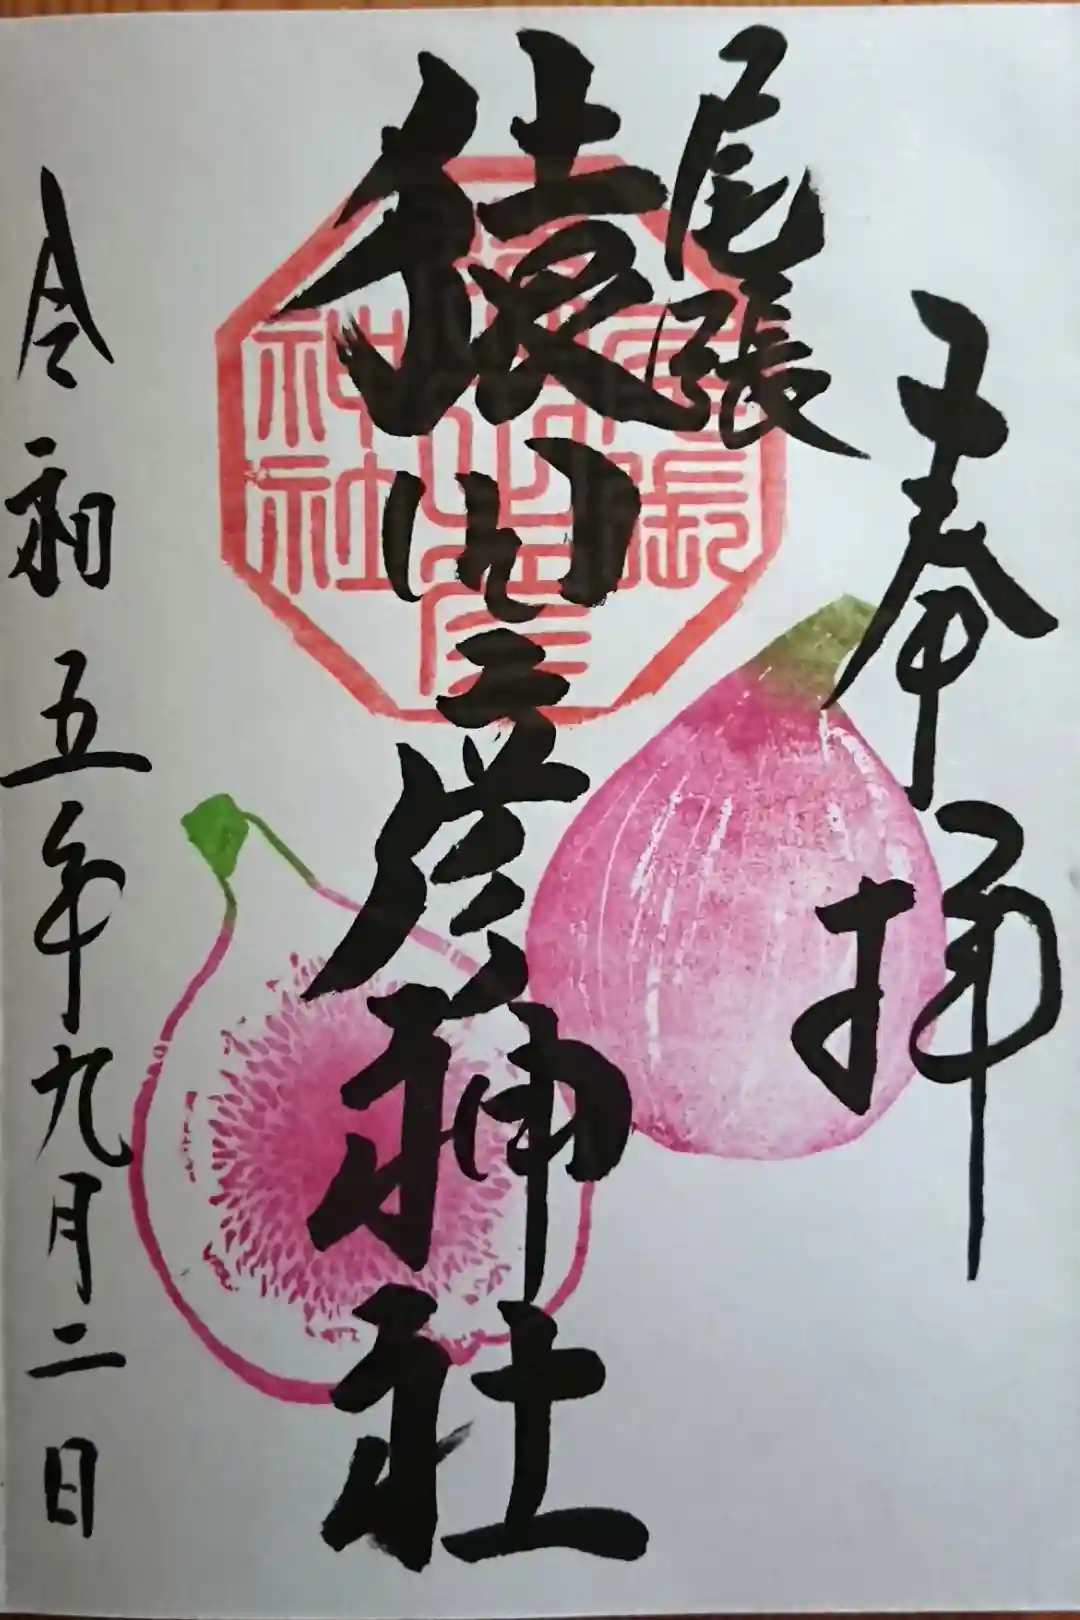 奉拝
尾張
猿田彦神社
令和五年九月二日
尾張
神社